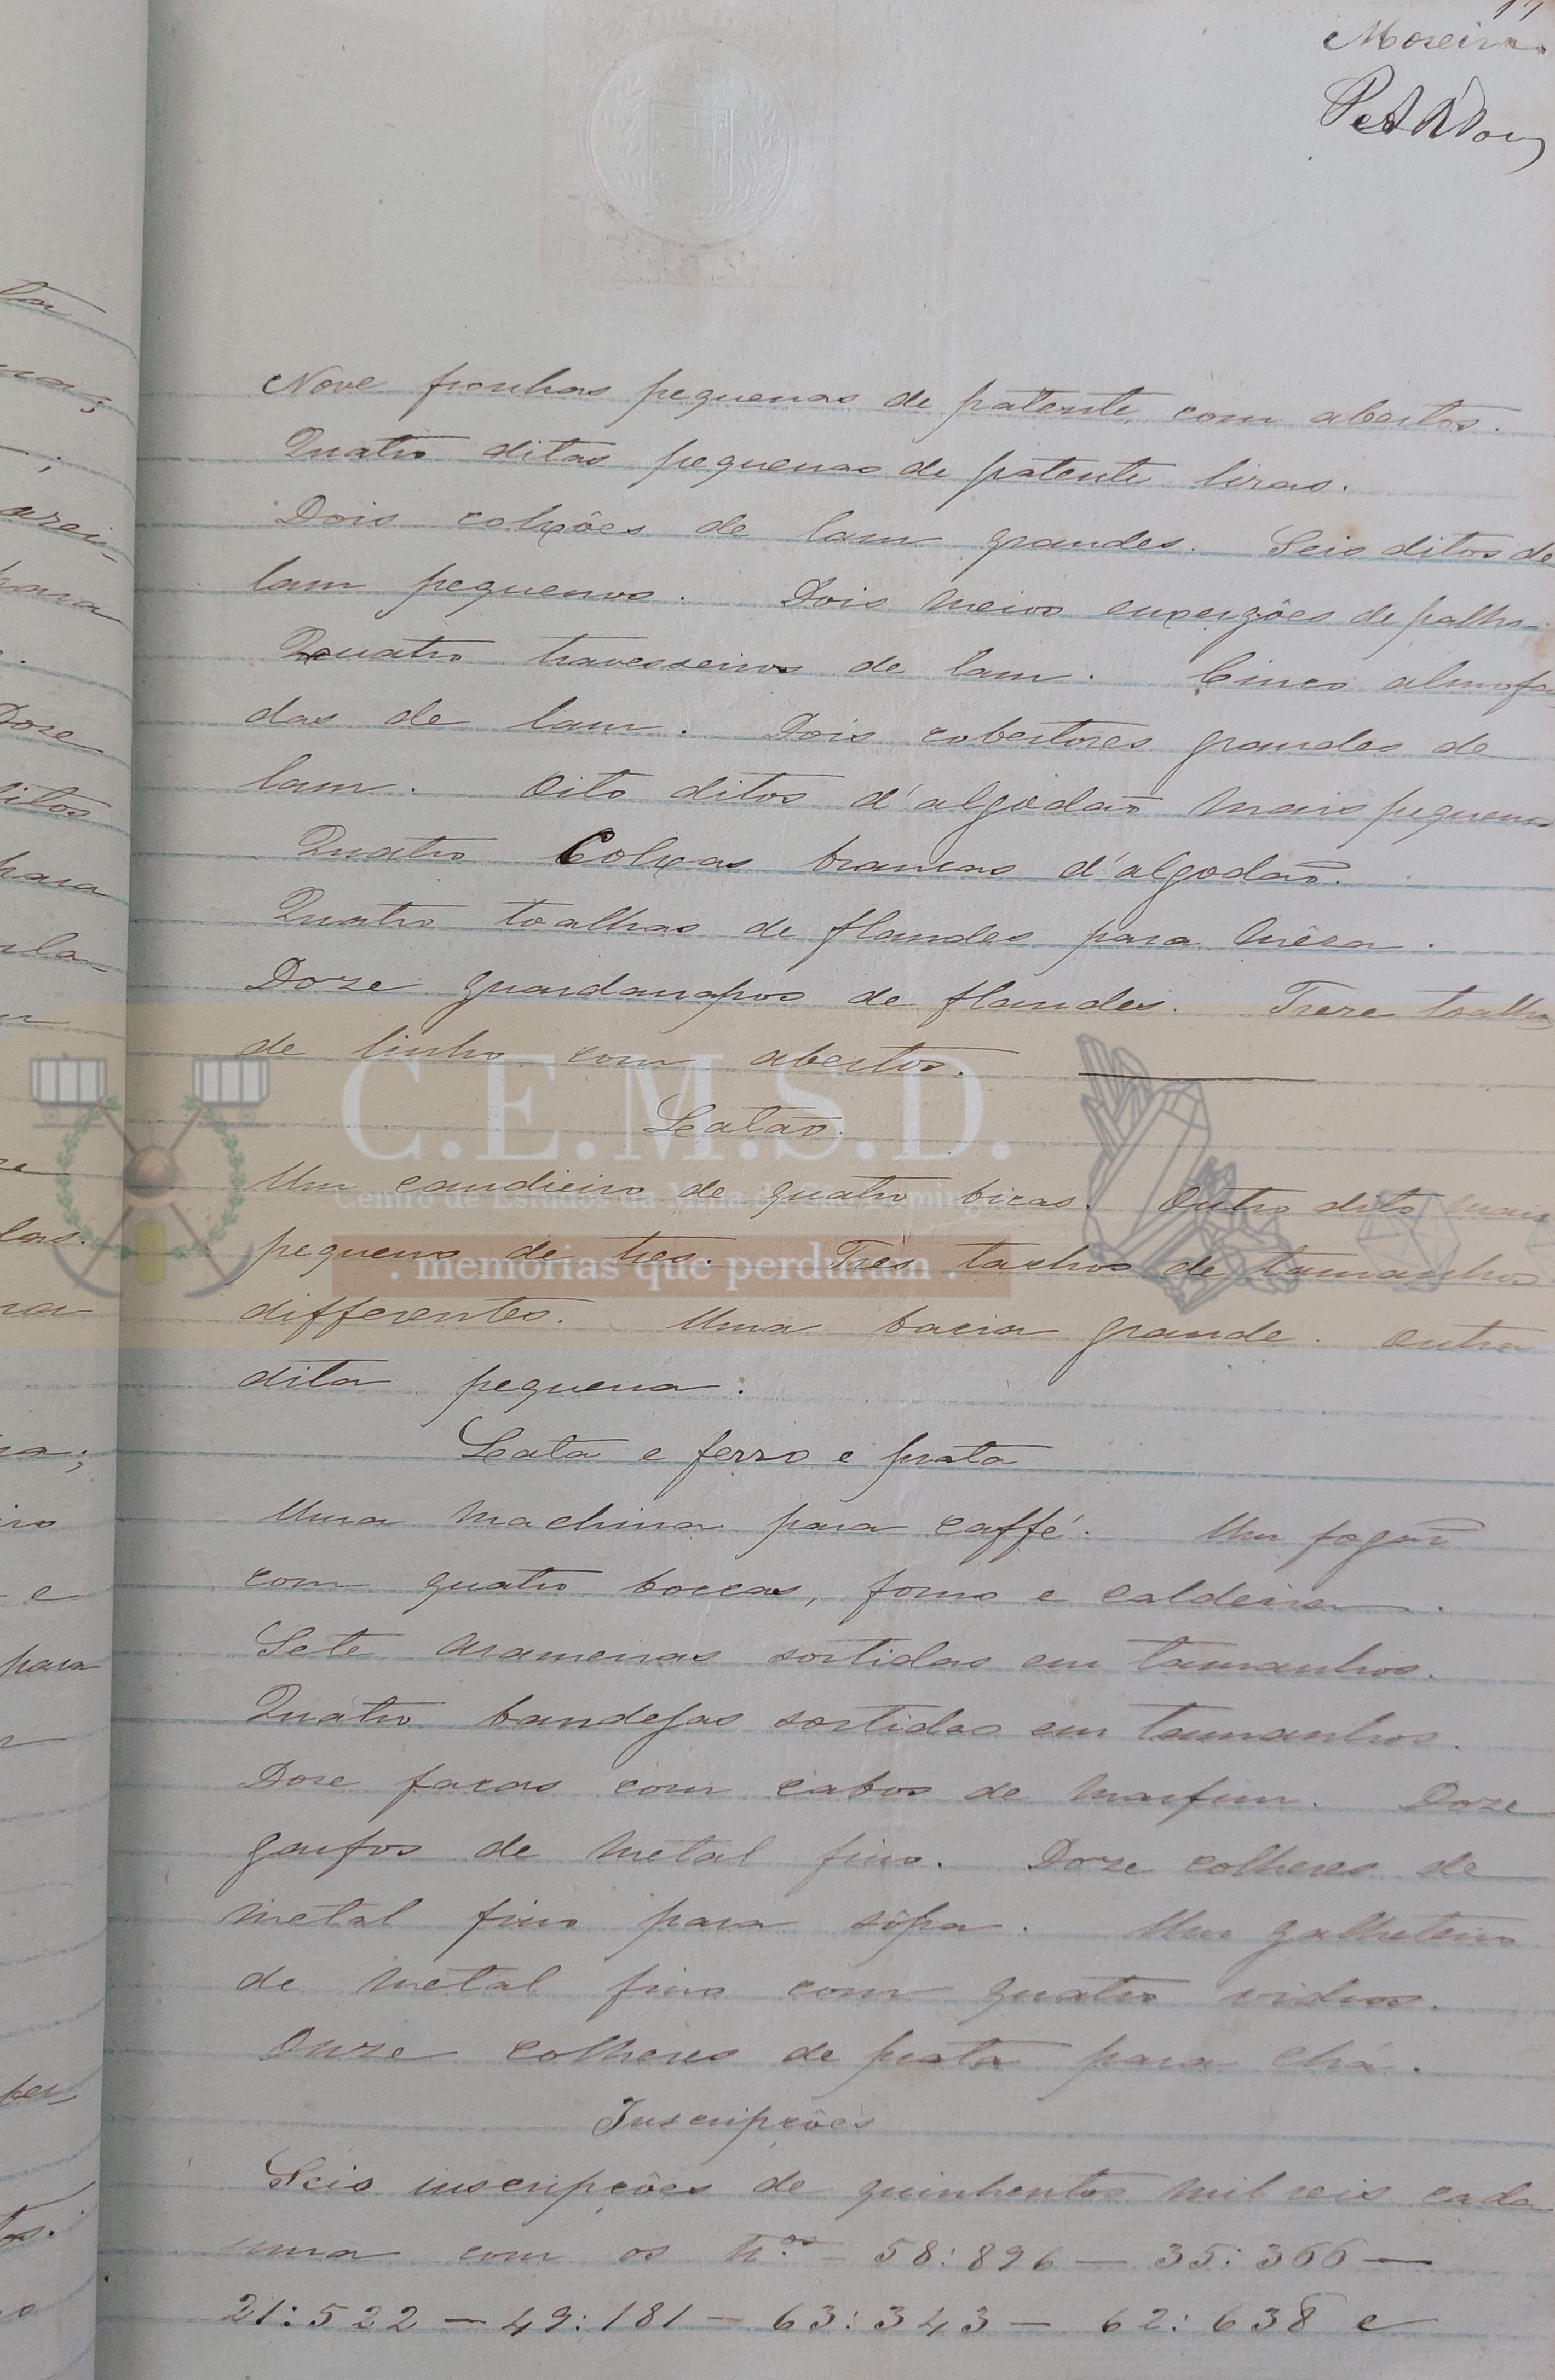 17
Moreira
Nove fronhas pequenas de patente, com abertos.
Quatro ditas pequenas de patente lizas.
Dois colxões de lam grandes. Seis ditos de
lam pequenos. Dois meios enxergões de palha
Quatro travesseiros de lam. Cinco almofa
das de lam. Dois cobertores grandes de
lam. Oito ditos d'algodão mais pequenos
Quatro Colxas brancas d'algodão.
Quatro toalhas de flandes para mêsa.
Doze guardanapos de flandes. Treze toalhas
de linho com abertos.
Latão.
Um candieiro de quatro bicas. Outro dito mais
pequeno de tres. Três tachos de tamanhos
differentes. Uma bacia grande. Outra
dita pequena.
Lata e ferro e prata
Uma machina para caffé. Um fogão
com quatro boccas, forno e caldeira.
Sete arameiras sortidas em tamanhos.
Quatro bandejas sortidas em tamanhos.
Doze facas com cabos de marfim. Doze
garfos de metal fino. Doze colheres de
metal fino para sôpa. Um galheteiro
de metal fino com quatro vidros.
Onze colheres de prata para chá.
Inscripções
Seis inscripções de quinhentos mil reis cada
uma com os n.os 58:896 — 35:366 —
21:522 — 49:181 — 63:343 — 62:638 e
C.E.M.S.D.
Centro de Estudos da Mina de São Domingos
. memórias que perduram .